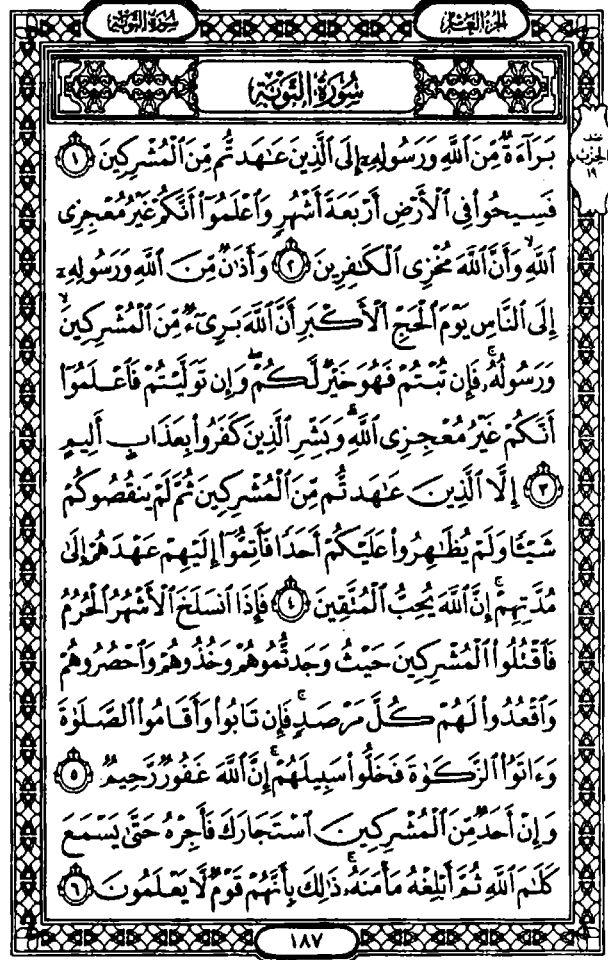 الجزء العاشر
سورة التوبة
سُورَةُ التَّوْبَةِ
بَرَآءَةٌ مِّنَ ٱللَّهِ وَرَسُولِهِۦٓ إِلَى ٱلَّذِينَ عَٰهَدتُّم مِّنَ ٱلْمُشْرِكِينَ ١
فَسِيحُوا۟ فِى ٱلْأَرْضِ أَرْبَعَةَ أَشْهُرٍ وَٱعْلَمُوٓا۟ أَنَّكُمْ غَيْرُ مُعْجِزِى
ٱللَّهِ ۙ وَأَنَّ ٱللَّهَ مُخْزِى ٱلْكَٰفِرِينَ ٢ وَأَذَٰنٌ مِّنَ ٱللَّهِ وَرَسُولِهِۦٓ
إِلَى ٱلنَّاسِ يَوْمَ ٱلْحَجِّ ٱلْأَكْبَرِ أَنَّ ٱللَّهَ بَرِىٓءٌ مِّنَ ٱلْمُشْرِكِينَ ۙ
وَرَسُولُهُۥ ۚ فَإِن تُبْتُمْ فَهُوَ خَيْرٌ لَّكُمْ ۖ وَإِن تَوَلَّيْتُمْ فَٱعْلَمُوٓا۟
أَنَّكُمْ غَيْرُ مُعْجِزِى ٱللَّهِ ۗ وَبَشِّرِ ٱلَّذِينَ كَفَرُوا۟ بِعَذَابٍ أَلِيمٍ
٣ إِلَّا ٱلَّذِينَ عَٰهَدتُّم مِّنَ ٱلْمُشْرِكِينَ ثُمَّ لَمْ يَنقُصُوكُمْ
شَيْـًٔا وَلَمْ يُظَٰهِرُوا۟ عَلَيْكُمْ أَحَدًا فَأَتِمُّوٓا۟ إِلَيْهِمْ عَهْدَهُمْ إِلَىٰ
مُدَّتِهِمْ ۚ إِنَّ ٱللَّهَ يُحِبُّ ٱلْمُتَّقِينَ ٤ فَإِذَا ٱنسَلَخَ ٱلْأَشْهُرُ ٱلْحُرُمُ
فَٱقْتُلُوا۟ ٱلْمُشْرِكِينَ حَيْثُ وَجَدتُّمُوهُمْ وَخُذُوهُمْ وَٱحْصُرُوهُمْ
وَٱقْعُدُوا۟ لَهُمْ كُلَّ مَرْصَدٍ ۚ فَإِن تَابُوا۟ وَأَقَامُوا۟ ٱلصَّلَوٰةَ
وَءَاتَوُا۟ ٱلزَّكَوٰةَ فَخَلُّوا۟ سَبِيلَهُمْ ۚ إِنَّ ٱللَّهَ غَفُورٌ رَّحِيمٌ ٥
وَإِنْ أَحَدٌ مِّنَ ٱلْمُشْرِكِينَ ٱسْتَجَارَكَ فَأَجِرْهُ حَتَّىٰ يَسْمَعَ
كَلَٰمَ ٱللَّهِ ثُمَّ أَبْلِغْهُ مَأْمَنَهُۥ ۚ ذَٰلِكَ بِأَنَّهُمْ قَوْمٌ لَّا يَعْلَمُونَ ٦
الحزب
١٩
١٨٧